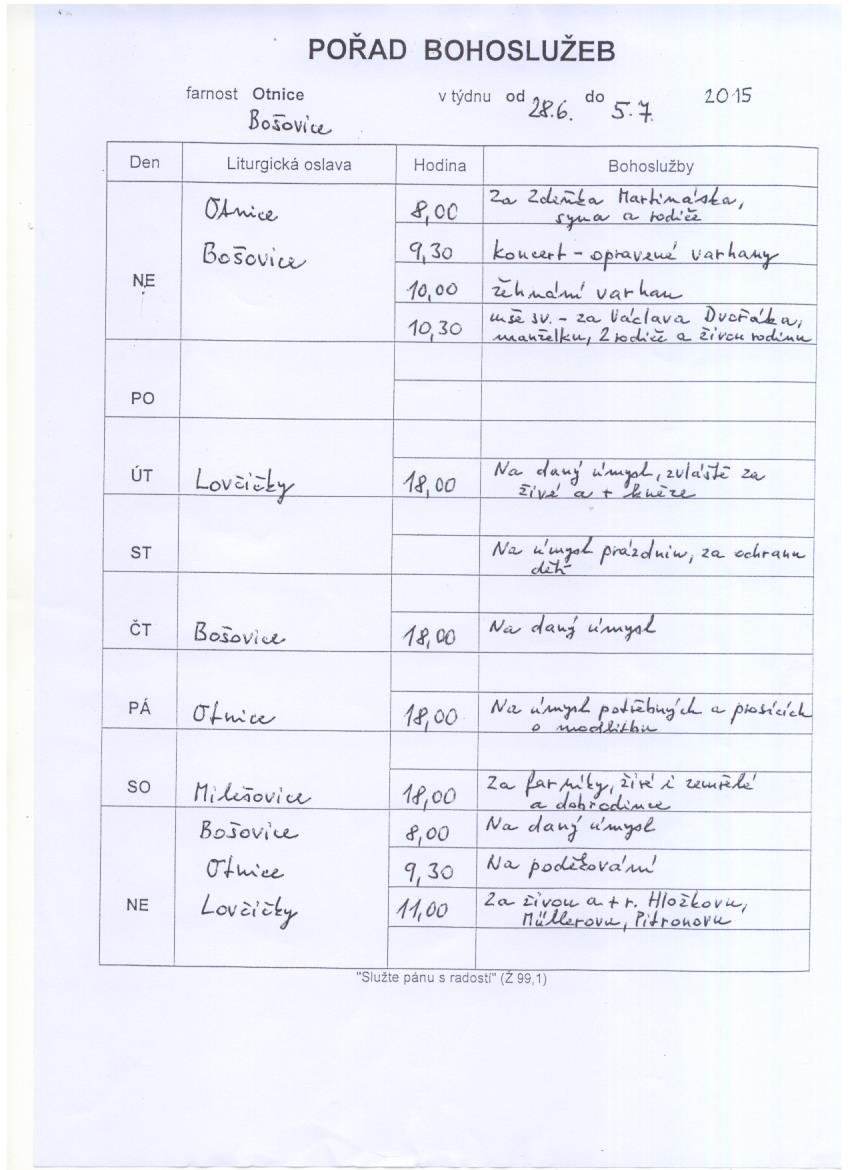 POŘAD BOHOSLUŽEB
farnost Otnice v týdnu od 28.6. do 5.7. 2015
Bošovice
Den Liturgická oslava Hodina Bohoslužby
NE Otnice 8,00 Za Zdeňka Martináska,
syna a rodiče
Bošovice 9,30 koncert - opravené varhany
10,00 žehnání varhan
10,30 mše sv. - za Václava Dvořáka,
manželku, 2 rodiče a živou rodinu
PO
ÚT Lovčičky 18,00 Na daný úmysl, zvláště za
živé a + kněze
ST Na úmysl prázdnin, za ochranu
dětí
ČT Bošovice 18,00 Na daný úmysl
PÁ Otnice 18,00 Na úmysl potřebných a prosících
o modlitbu
SO Milešovice 18,00 Za farníky, živé i zemřelé
a dobrodince
NE Bošovice 8,00 Na daný úmysl
Otnice 9,30 Na poděkování
Lovčičky 11,00 Za živou a + r. Hložkovu,
Müllerovu, Pitronovu
"Služte pánu s radostí" (Ž 99,1)